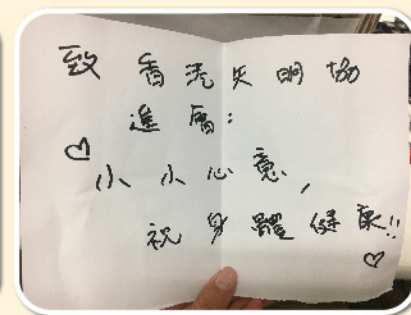 致 香港失明協
進會:
小小心意,
祝身體健康!!